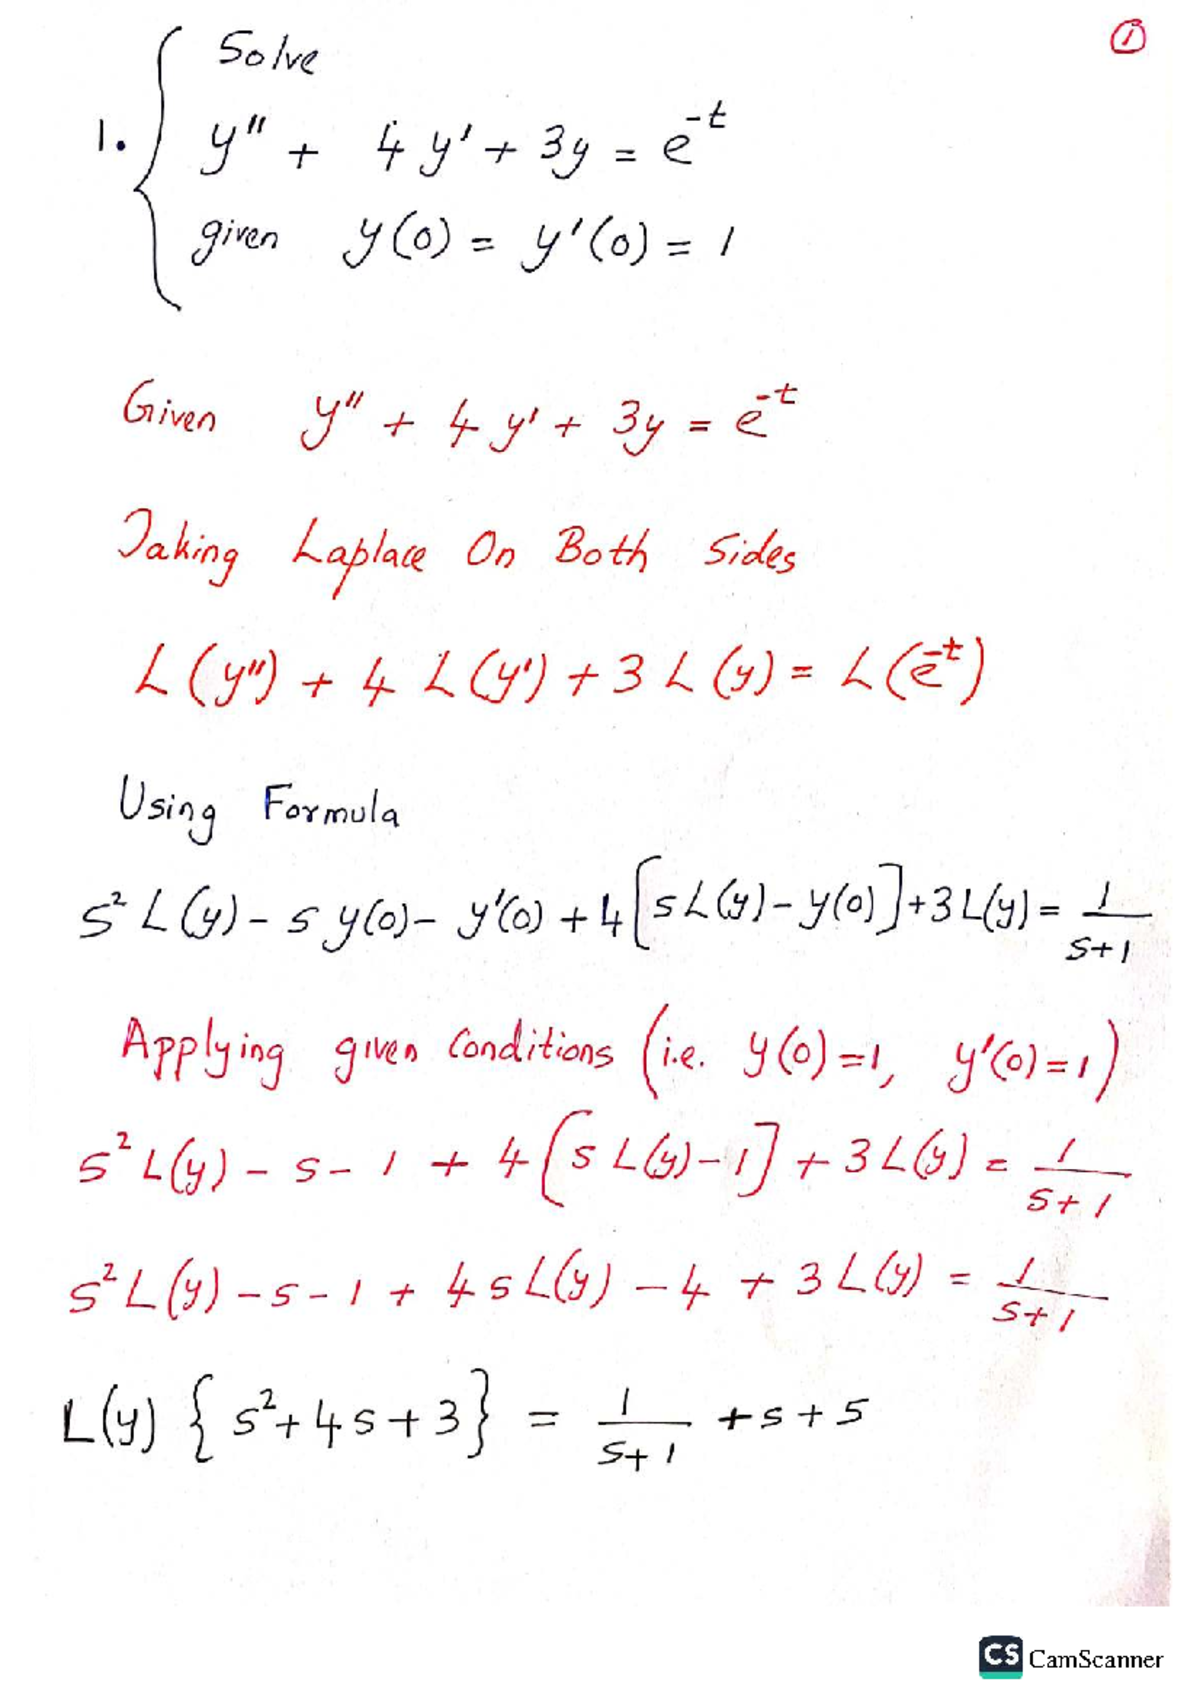 ①
Solve
1. y'' + 4y' + 3y = e^-t
given y(0) = y'(0) = 1
Given y'' + 4y' + 3y = e^-t
Taking Laplace On Both Sides
L(y'') + 4 L(y') + 3 L(y) = L(e^-t)
Using Formula
s² L(y) - s y(0) - y'(0) + 4[s L(y) - y(0)] + 3 L(y) = 1/(s+1)
Applying given Conditions (i.e. y(0) = 1, y'(0) = 1)
s² L(y) - s - 1 + 4[s L(y) - 1] + 3 L(y) = 1/(s+1)
s² L(y) - s - 1 + 4 s L(y) - 4 + 3 L(y) = 1/(s+1)
L(y) {s² + 4s + 3} = 1/(s+1) + s + 5
CS CamScanner